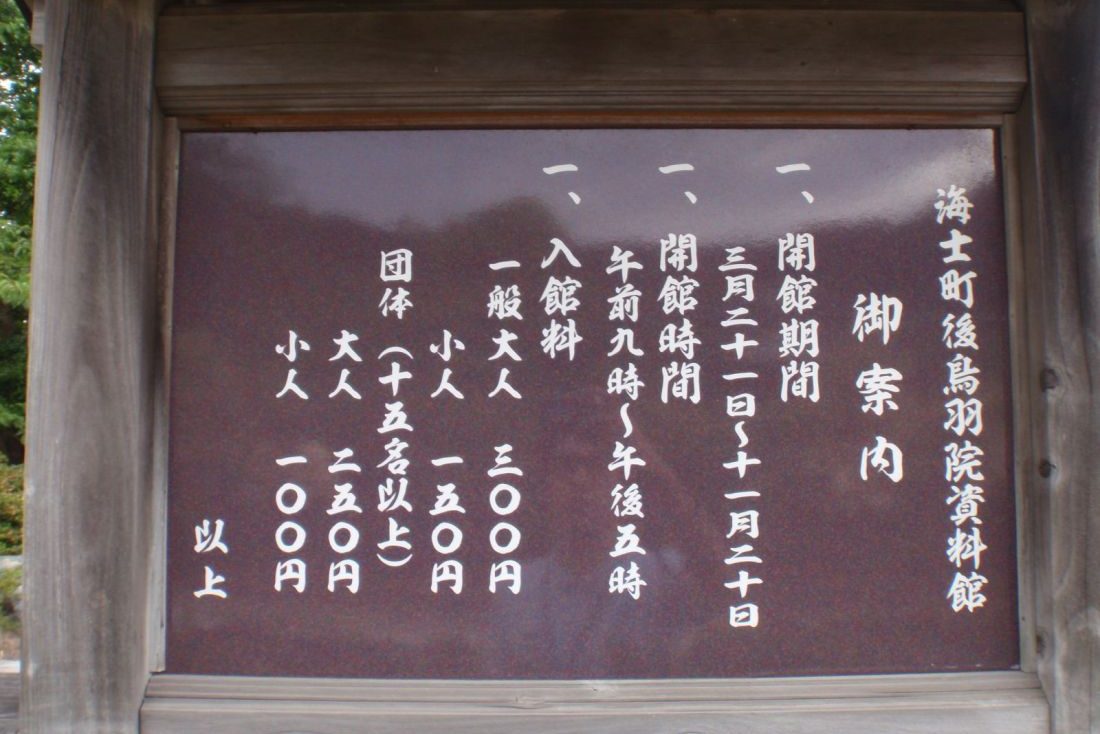 海士町後鳥羽院資料館
御案内
一、開館期間
三月二十一日~十一月二十日
一、開館時間
午前九時~午後五時
一、入館料
一般大人 三〇〇円
小人 一五〇円
団体(十五名以上)
大人 二五〇円
小人 一〇〇円
以上